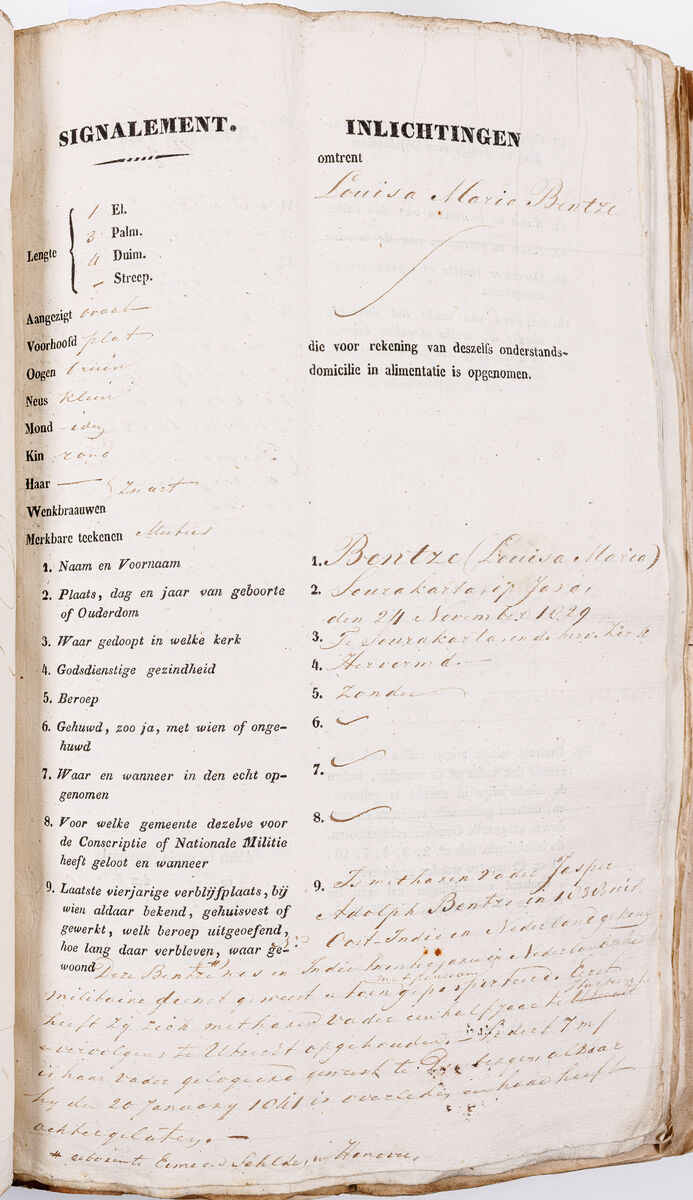 SIGNALEMENT.
Lengte
1 El.
3 Palm.
4 Duim.
- Streep.
Aangezigt ovaal
Voorhoofd plat
Oogen bruin
Neus klein
Mond idem
Kin rond
Haar — } zwart
Wenkbraauwen
Merkbare teekenen
INLICHTINGEN
omtrent
Louisa Maria Bentze
die voor rekening van deszelfs onderstands-
domicilie in alimentatie is opgenomen.
1. Naam en Voornaam
1. Bentze (Louisa Maria)
2. Plaats, dag en jaar van geboorte
of Ouderdom
2. Sourakarta op Java,
den 24 November 1829
3. Waar gedoopt in welke kerk
3. Te Sourakarta in de herv. kerk
4. Godsdienstige gezindheid
4. Hervormd
5. Beroep
5. Zonder
6. Gehuwd, zoo ja, met wien of onge-
huwd
6.
7. Waar en wanneer in den echt op-
genomen
7.
8. Voor welke gemeente dezelve voor
de Conscriptie of Nationale Militie
heeft geloot en wanneer
8.
9. Laatste vierjarige verblijfplaats, bij
wien aldaar bekend, gehuisvest of
gewerkt, welk beroep uitgeoefend,
hoe lang daar verbleven, waar ge-
woond
9. Is met haren vader Jasper
Adolph Bentze in 1838 uit
Oost-Indie in Nederland
Deze Bentze # was in Indie in Nederlandsche
militaire dienst geweest en toen met pensioen gepasporteerd. Eerst
heeft zij zich met haren vader een half jaar te
vervolgens te Utrecht opgehouden.
is haar vader gelogeerd geweest te alwaar
hy den 20 January 1841 is overleden en haar heeft
achtergelaten. —
# geboorte Eime in Hanover,